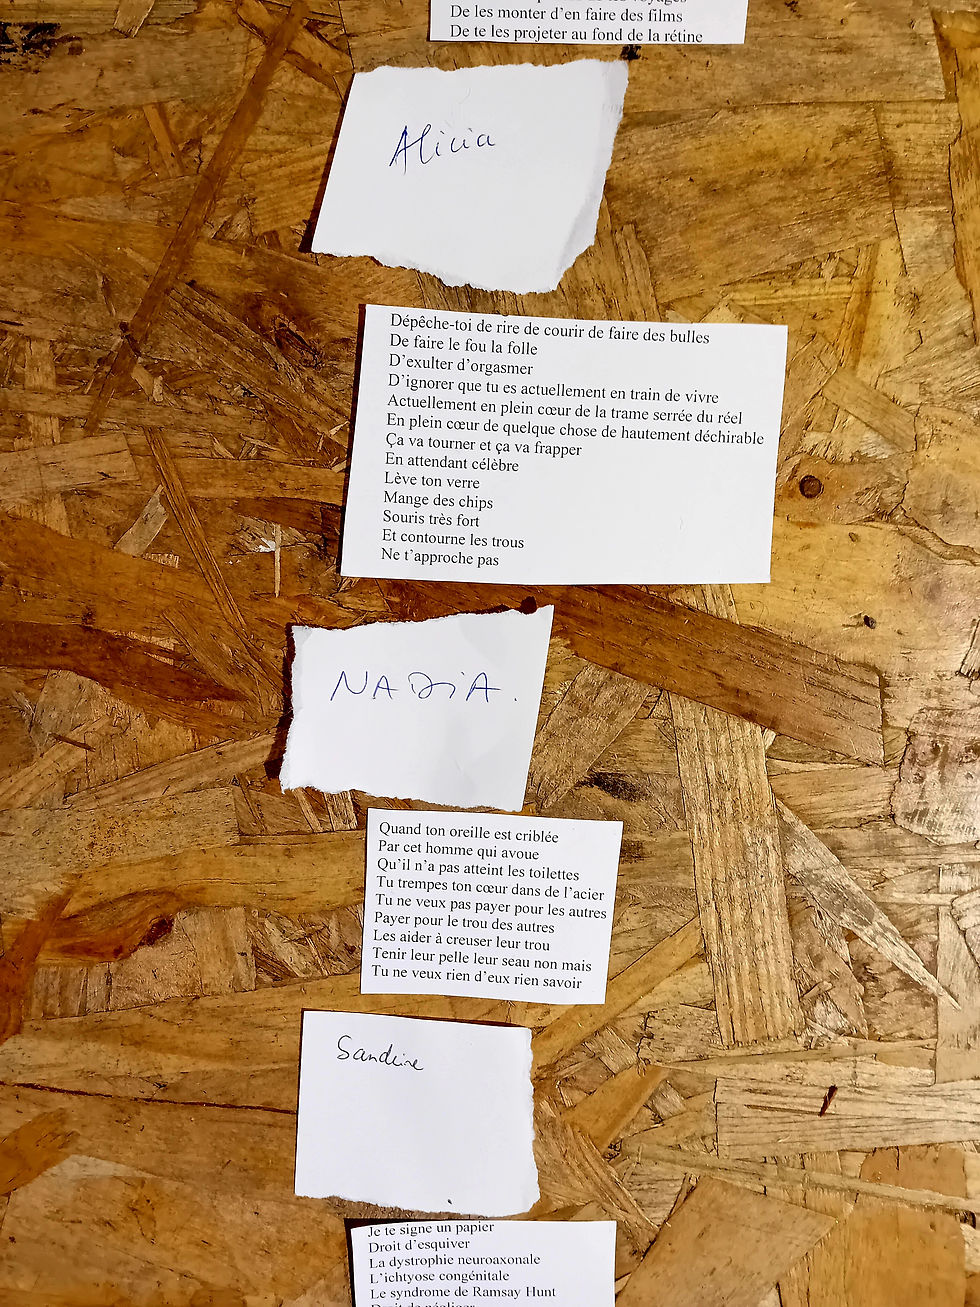 De les monter d'en faire des films
De te les projeter au fond de la rétine
Alicia
Dépêche-toi de rire de courir de faire des bulles
De faire le fou la folle
D'exulter d'orgasmer
D'ignorer que tu es actuellement en train de vivre
Actuellement en plein cœur de la trame serrée du réel
En plein cœur de quelque chose de hautement déchirable
Ça va tourner et ça va frapper
En attendant célèbre
Lève ton verre
Mange des chips
Souris très fort
Et contourne les trous
Ne t'approche pas
NADiA.
Quand ton oreille est criblée
Par cet homme qui avoue
Qu'il n'a pas atteint les toilettes
Tu trempes ton cœur dans de l'acier
Tu ne veux pas payer pour les autres
Payer pour le trou des autres
Les aider à creuser leur trou
Tenir leur pelle leur seau non mais
Tu ne veux rien d'eux rien savoir
Sandrine
Je te signe un papier
Droit d'esquiver
La dystrophie neuroaxonale
L'ichtyose congénitale
Le syndrome de Ramsay Hunt